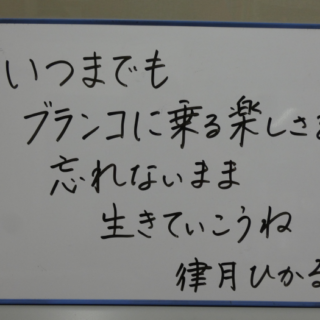 いつまでも
ブランコに乗る楽しさ
忘れないまま
生きていこうね
律月ひかる